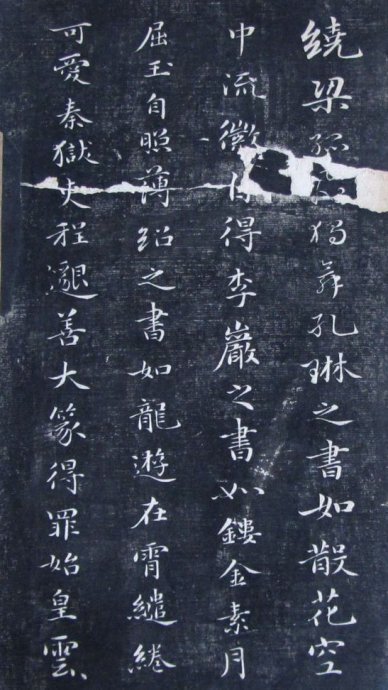 繞梁孤獨舞孔琳之書如散花空
中流徽自得李巖之書如鏤金素月
屈玉自照薄紹之書如龍遊在霄繾綣
可愛秦獄吏程邈善大篆得罪始皇雲